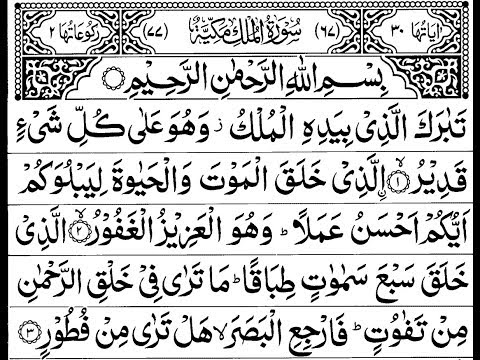 اٰيَاتُهَا ٣٠ (٦٧) سُوْرَةُ الْمُلْكِ مَكِّيَّةٌ (٧٧) رُكُوْعَاتُهَا ٢
بِسْمِ اللّٰهِ الرَّحْمٰنِ الرَّحِيْمِ ۝
تَبٰرَكَ الَّذِىْ بِيَدِهِ الْمُلْكُ ز وَهُوَ عَلٰى كُلِّ شَىْءٍ
قَدِيْرُ ۝١ۙ الَّذِىْ خَلَقَ الْمَوْتَ وَالْحَيٰوةَ لِيَبْلُوَكُمْ
اَيُّكُمْ اَحْسَنُ عَمَلًا ؕ وَهُوَ الْعَزِيْزُ الْغَفُوْرُ ۝٢ۙ الَّذِىْ
خَلَقَ سَبْعَ سَمٰوٰتٍ طِبَاقًا ؕ مَا تَرٰى فِىْ خَلْقِ الرَّحْمٰنِ
مِنْ تَفٰوُتٍ ؕ فَارْجِعِ الْبَصَرَ ۙ هَلْ تَرٰى مِنْ فُطُوْرٍ ۝٣